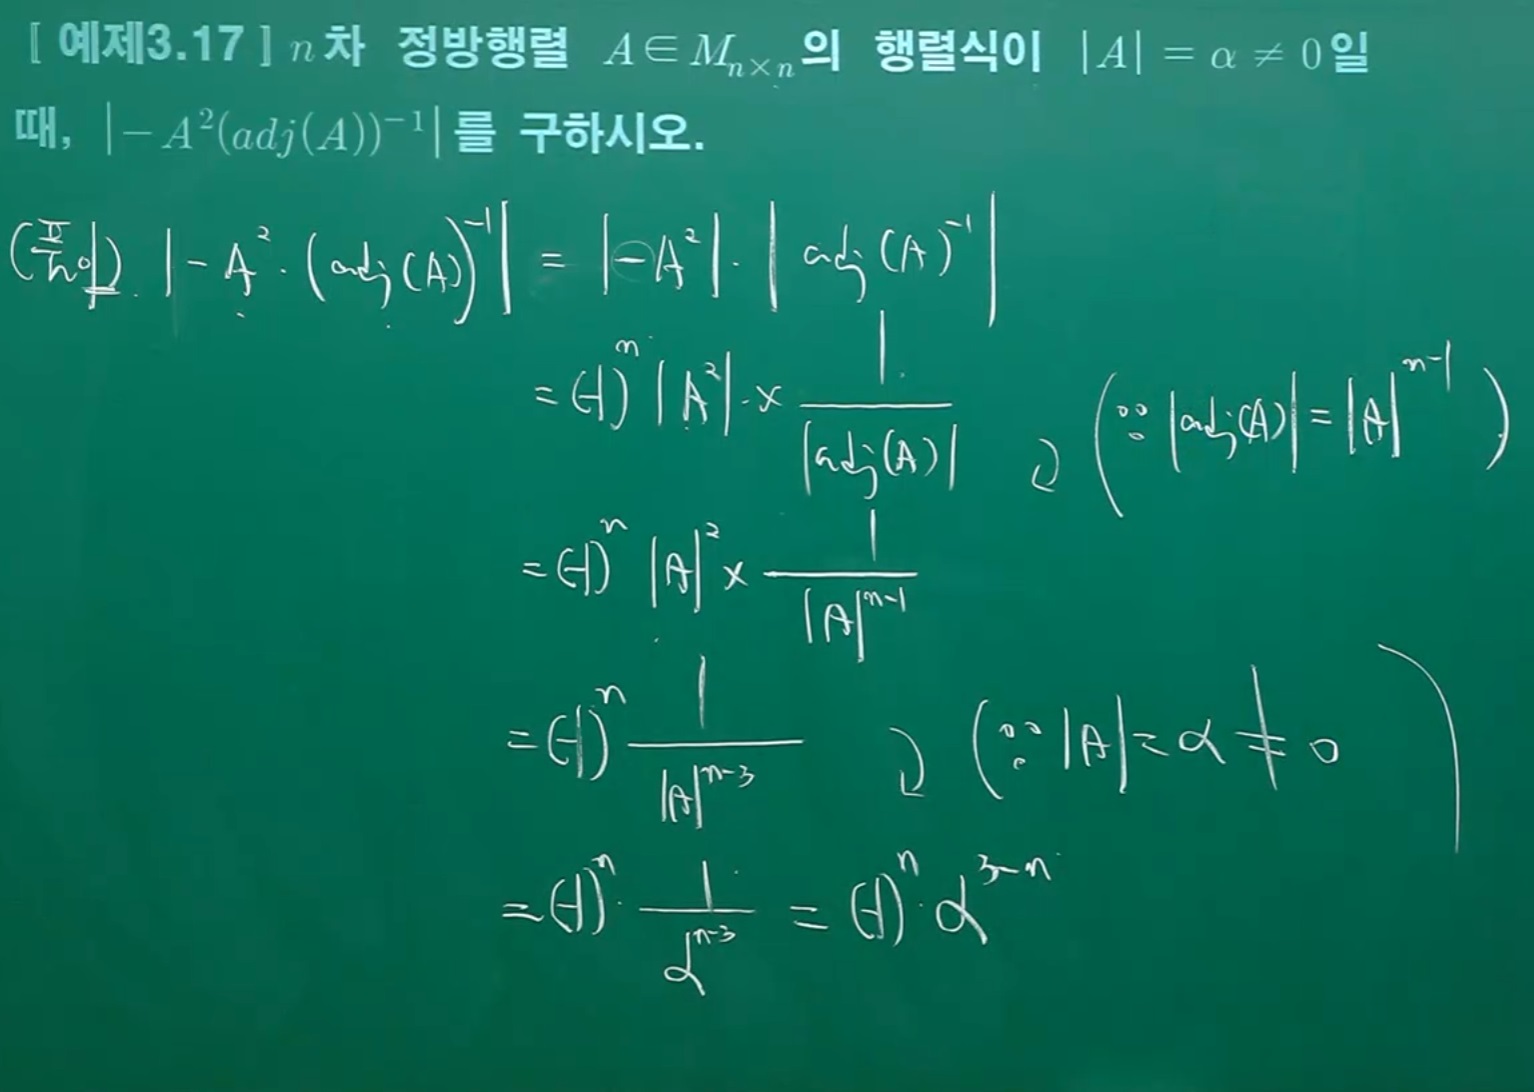 [ 예제3.17 ] n차 정방행렬 A∈M_{n×n}의 행렬식이 |A| = α ≠ 0일
때, |−A²(adj(A))⁻¹|를 구하시오.
(풀이). |−A²·(adj(A))⁻¹| = |−A²|·|adj(A)⁻¹|
= (−1)ⁿ |A²|·× 1/|adj(A)| (∵ |adj(A)| = |A|ⁿ⁻¹)
= (−1)ⁿ |A|² × 1/|A|ⁿ⁻¹
= (−1)ⁿ 1/|A|ⁿ⁻³ (∵ |A| = α ≠ 0)
= (−1)ⁿ · 1/αⁿ⁻³ = (−1)ⁿ · α³⁻ⁿ